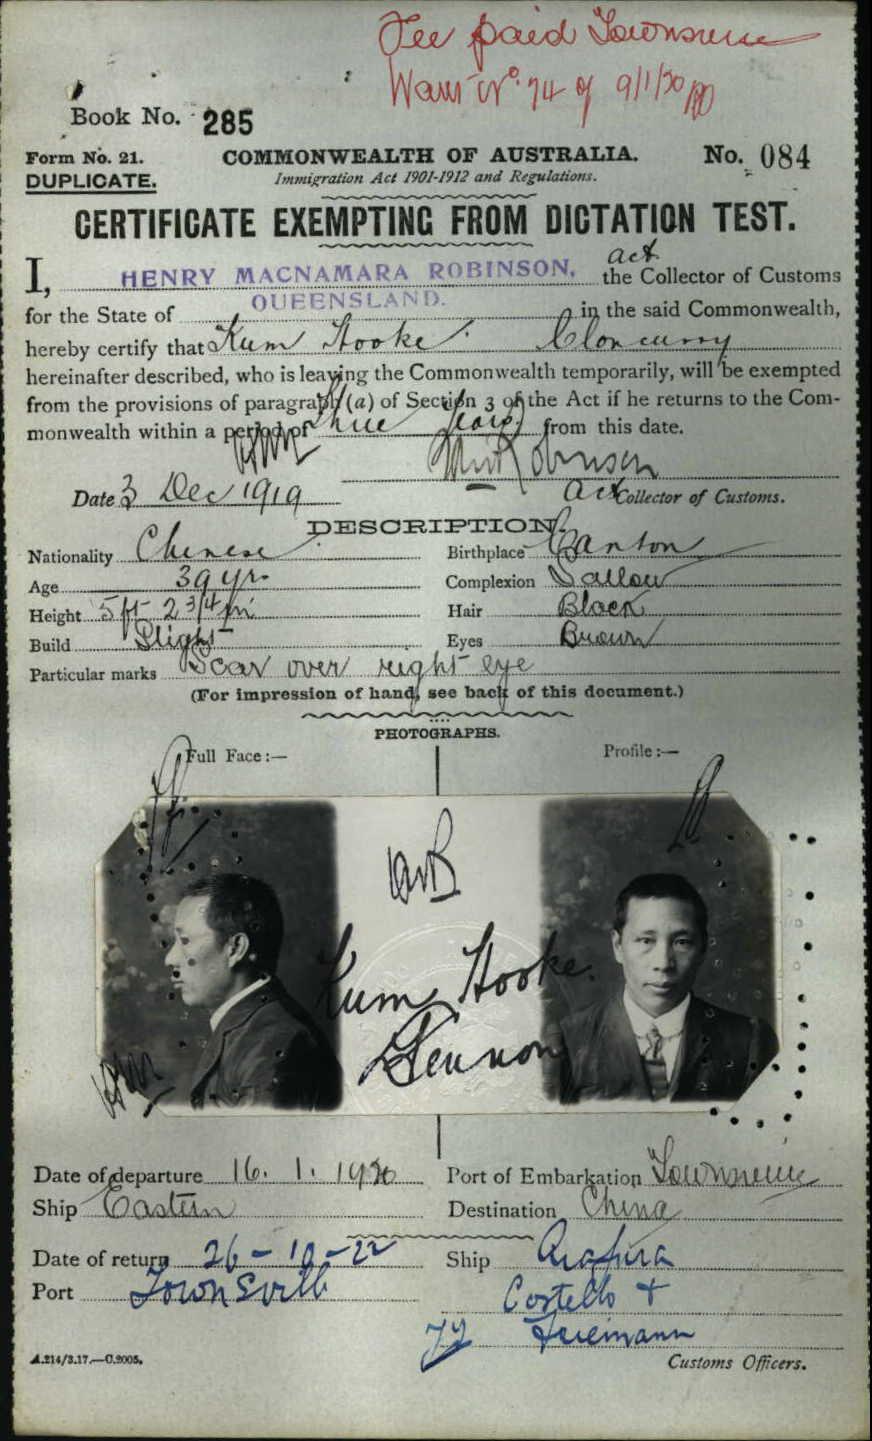 Fee paid Townsville
Warr No. 74 of 9/1/20
Book No. 285
Form No. 21.
COMMONWEALTH OF AUSTRALIA.
No. 084
DUPLICATE.
Immigration Act 1901-1912 and Regulations.
CERTIFICATE EXEMPTING FROM DICTATION TEST.
act
I, HENRY MACNAMARA ROBINSON, the Collector of Customs
for the State of QUEENSLAND. in the said Commonwealth,
hereby certify that Kum Hooke Cloncurry
hereinafter described, who is leaving the Commonwealth temporarily, will be exempted
from the provisions of paragraph (a) of Section 3 of the Act if he returns to the Com-
monwealth within a period of three years from this date.
HMRobinson
Date 3 Dec 1919
Act Collector of Customs.
DESCRIPTION.
Nationality Chinese
Birthplace Canton
Age 39 yrs
Complexion Sallow
Height 5 ft 2 3/4 in
Hair Black
Build Slight
Eyes Brown
Particular marks Scar over right eye
(For impression of hand, see back of this document.)
PHOTOGRAPHS.
Full Face :—
Profile :—
Kum Hooke
Date of departure 16. 1. 1920
Port of Embarkation Townsville
Ship Eastern
Destination China
Date of return 26-10-22
Ship Arafura
Port Townsville
Costello &
Friemann
A.214/3.17.—C.2005.
Customs Officers.